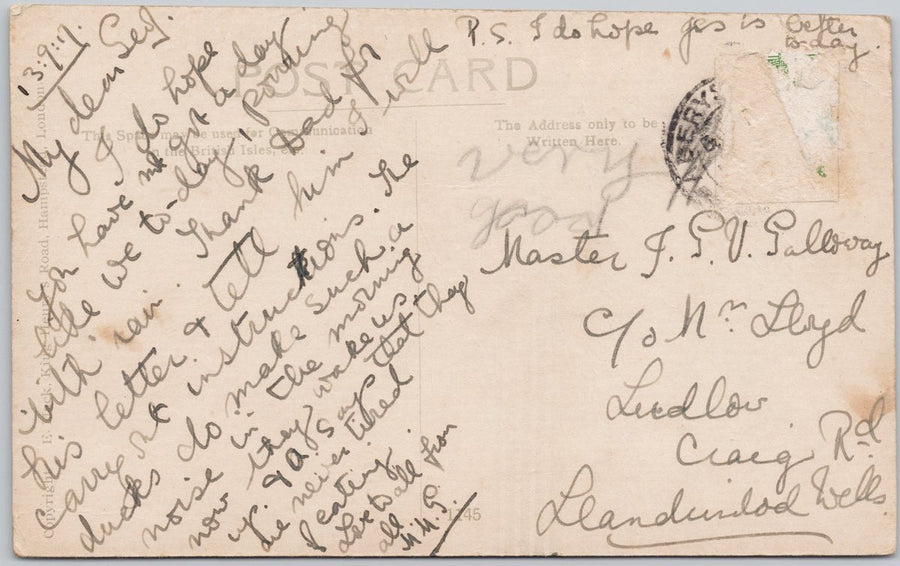 13.9.17.
My dear Geof.
I do hope
you have not got a day
like we to-day pouring
with rain. Thank Dad for
his letter & tell him I will
carry out instructions. The
ducks do make such a
noise in the morning
now they wake us
up. & A. say that they
are never tired
of eating.
Love to all from
all
M.M.G.
P.S. I do hope yrs is better
to-day.
POST CARD
This Space may be used for Communication
in the British Isles, etc.
The Address only to be
Written Here.
very
good
Master J. G. V. Galloway
c/o Mrs Lloyd
Ludlow
Craig Rd
Llandrindod Wells
1145
Copyright E. Mack, King Henry's Road, Hampstead, London